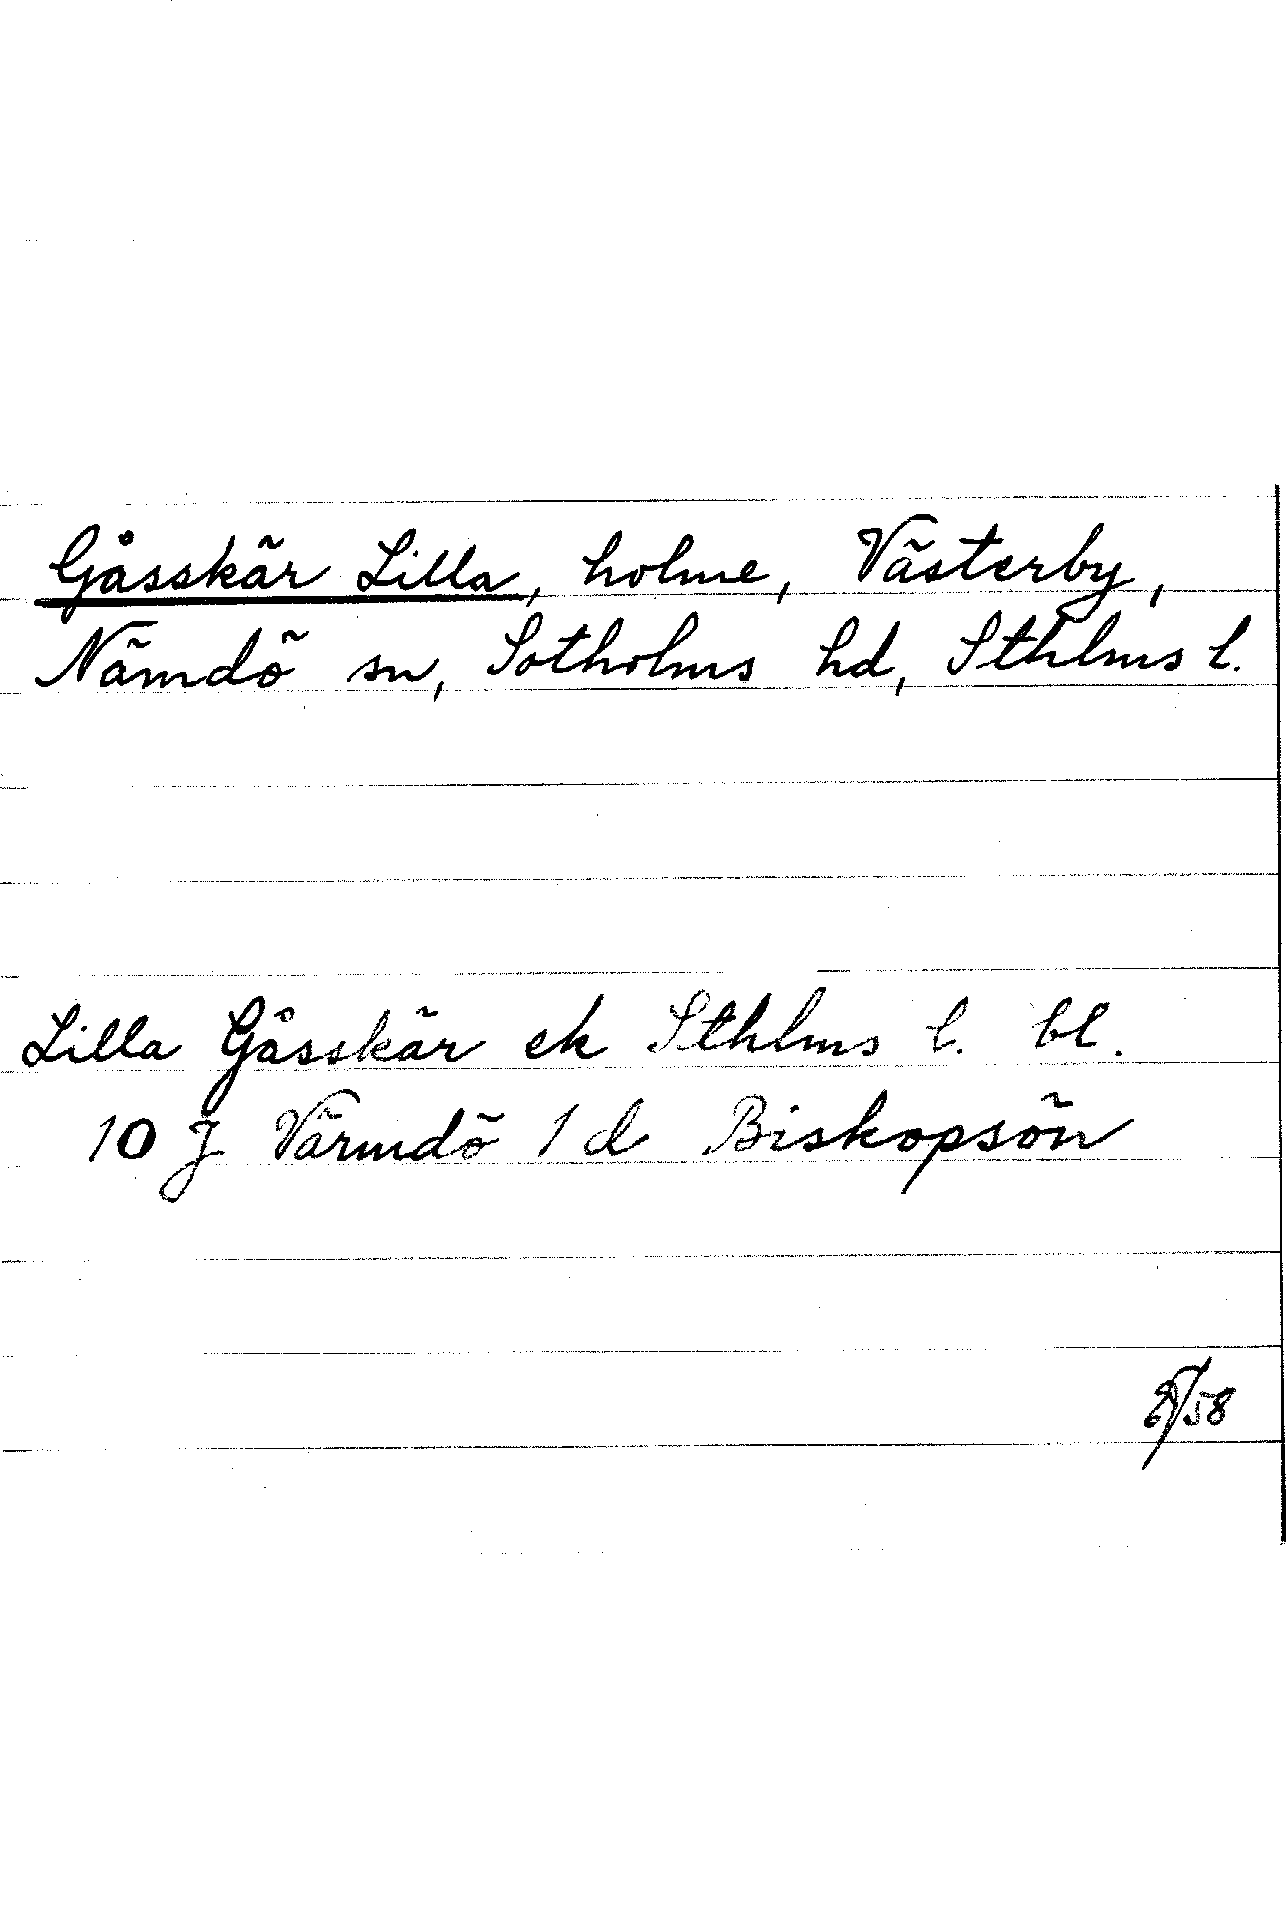 Gåsskär Lilla, holme, Västerby,
Nämdö sn, Sotholms hd, Sthlms l.
Lilla Gåsskär ek Sthlms l. bl.
10 J Värmdö 1 d Biskopsön
58